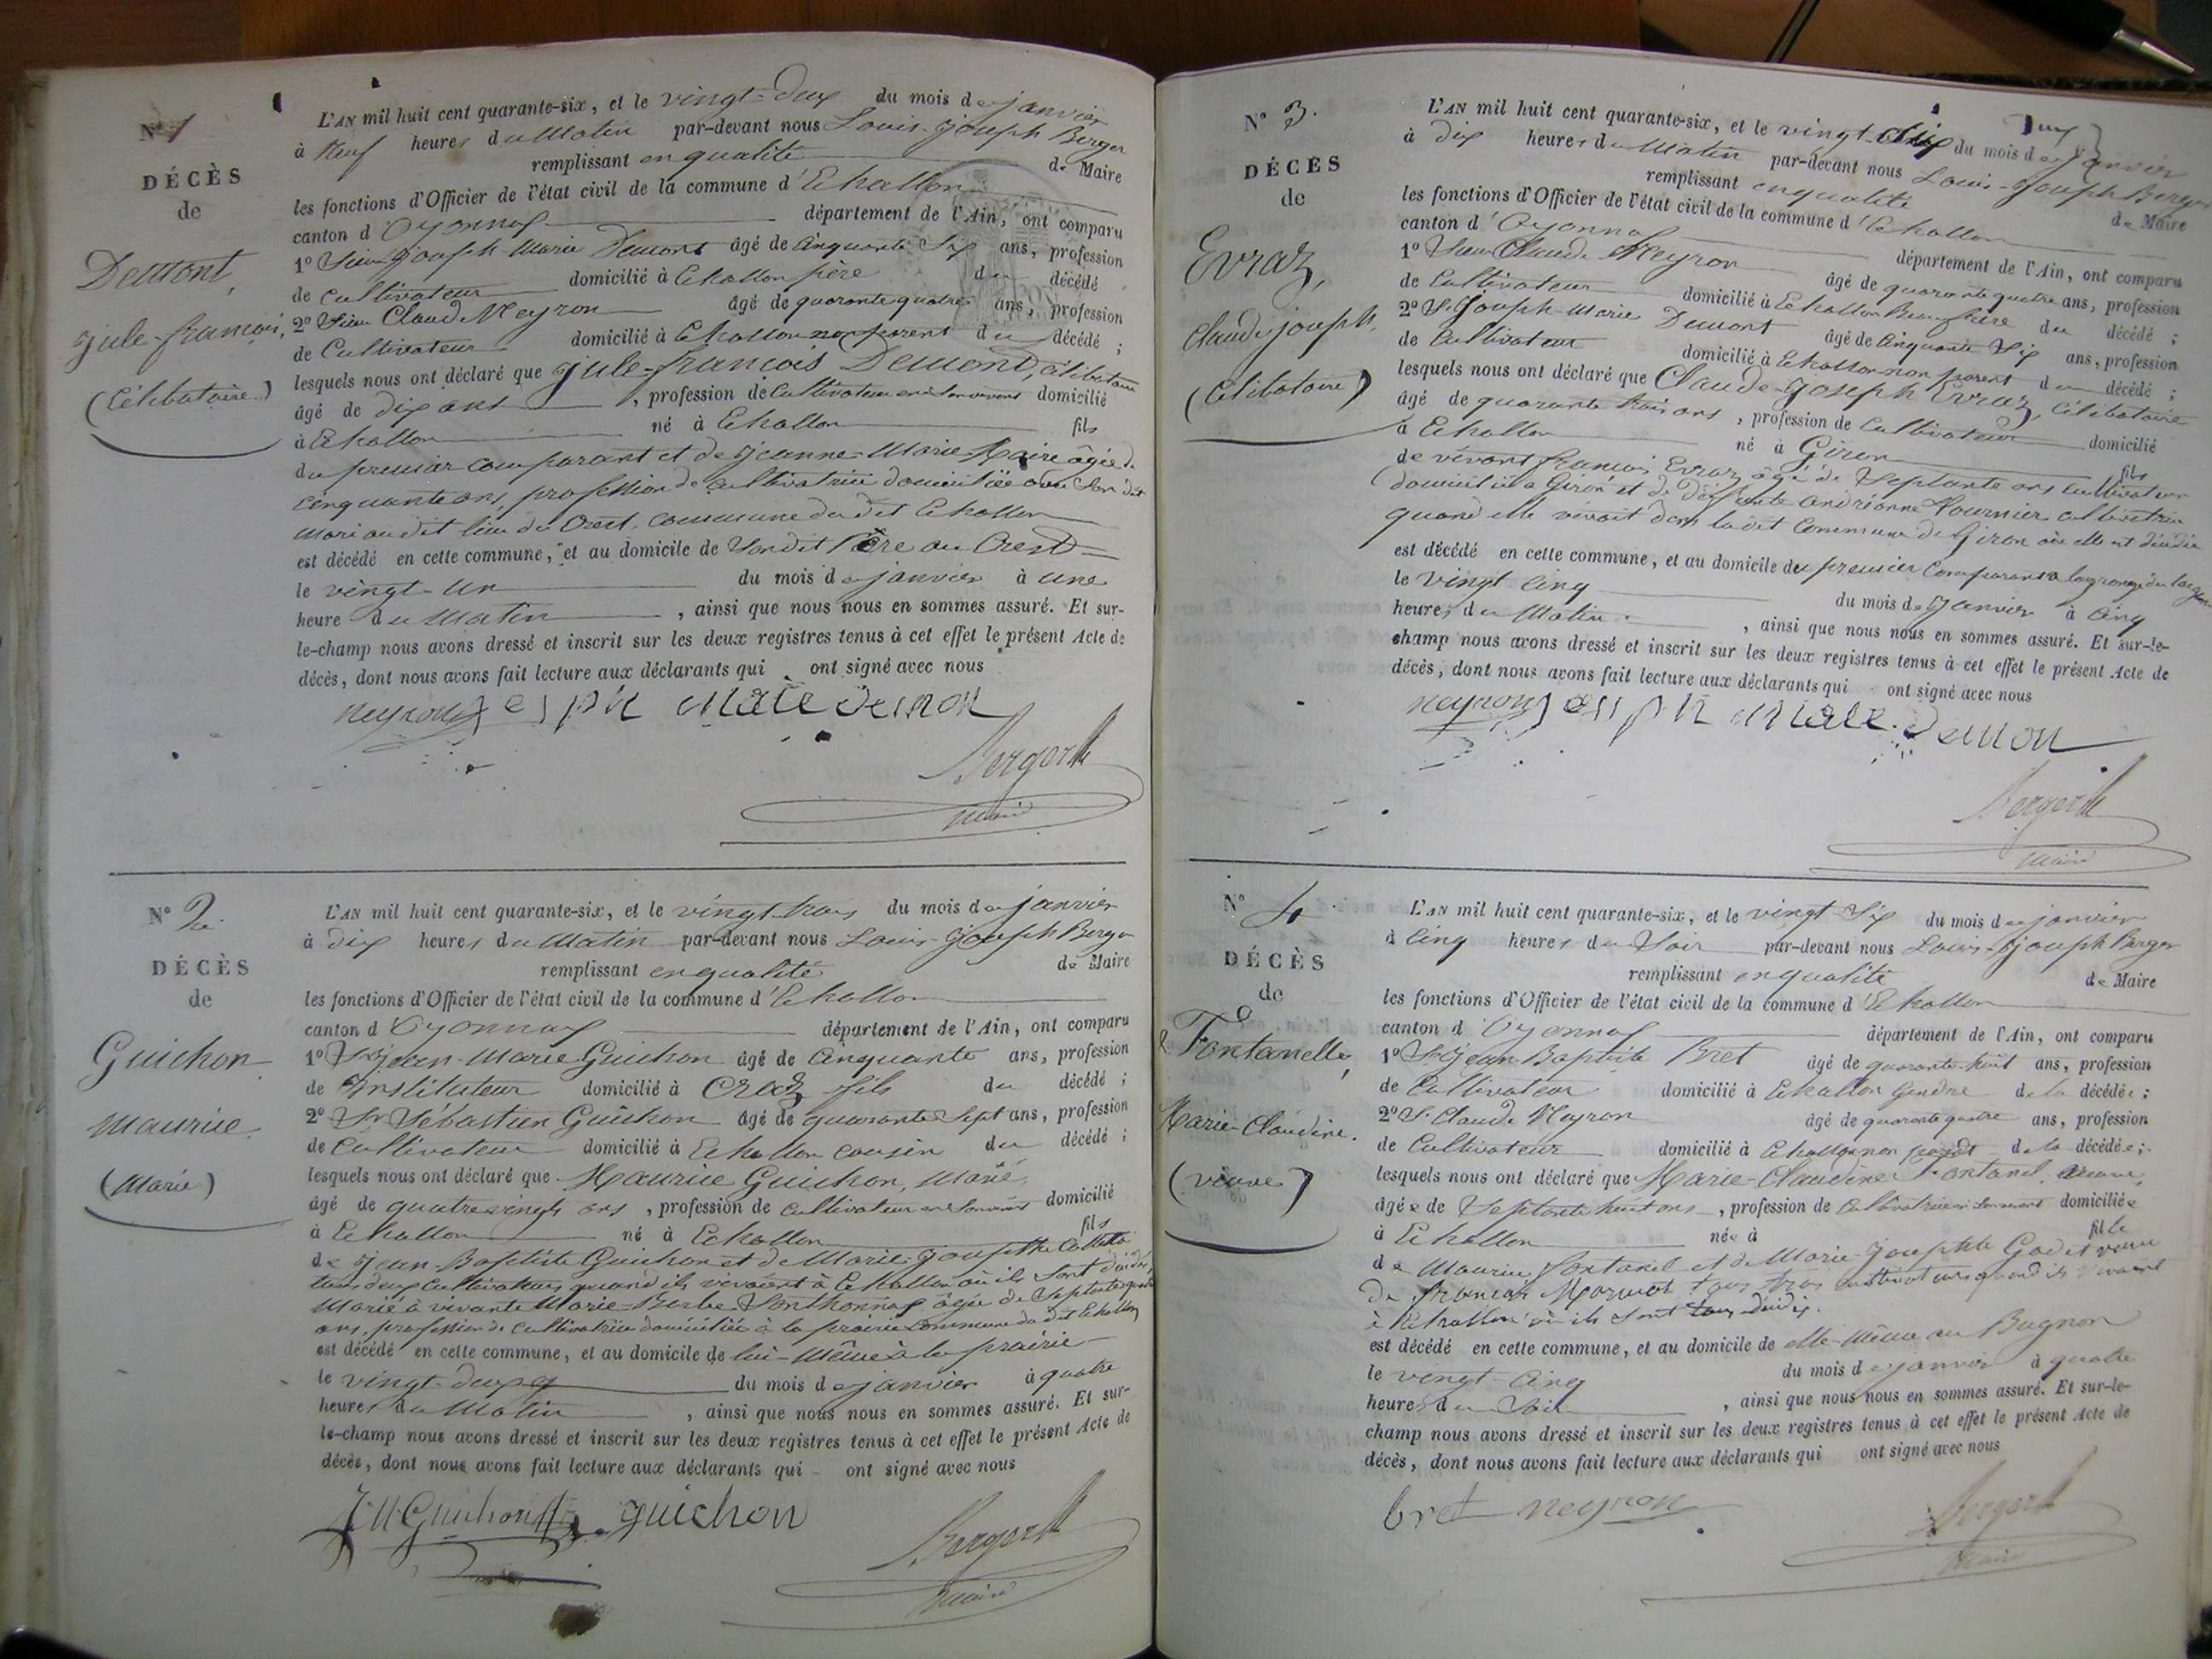 N° 1
DÉCÈS
de
Demont,
jule-françois,
(Célibataire)
L'AN mil huit cent quarante-six, et le vingt-deux du mois de janvier
à Neuf heures du Matin par-devant nous Louis-joseph Berger
remplissant en qualité de Maire
les fonctions d'Officier de l'état civil de la commune d'Echallon
canton d'Oyonnax département de l'Ain, ont comparu
1° Sieur joseph-Marie Demont âgé de Cinquante Six ans, profession
de Cultivateur domicilié à Echallon père du décédé
2° Sieur Claude Neyron âgé de quarante quatre ans, profession
de Cultivateur domicilié à Echallon non parent du décédé ;
lesquels nous ont déclaré que jule-françois Demont, célibataire
âgé de dix ans , profession de Cultivateur en son vivant domicilié
à Echallon né à Echallon fils
du premier comparant et de jeanne-Marie Maire âgée de
cinquante ans, profession de cultivatrice domiciliée avec son dit
mari au dit lieu du Crest, commune du dit Echallon
est décédé en cette commune, et au domicile de Son dit Père au Crest
le vingt-un du mois de janvier à une
heure du Matin , ainsi que nous nous en sommes assuré. Et sur-
le-champ nous avons dressé et inscrit sur les deux registres tenus à cet effet le présent Acte de
décès, dont nous avons fait lecture aux déclarants qui ont signé avec nous
neyron joseph marie demon
Berger
maire
N° 2
DÉCÈS
de
Guichon
maurice
(Marié)
L'AN mil huit cent quarante-six, et le vingt-trois du mois de janvier
à dix heures du Matin par-devant nous Louis-joseph Berger
remplissant en qualité de Maire
les fonctions d'Officier de l'état civil de la commune d'Echallon
canton d'Oyonnax département de l'Ain, ont comparu
1° Sr jean-Marie Guichon âgé de Cinquante ans, profession
de Instituteur domicilié à Craz fils du décédé ;
2° Sr Sébastien Guichon âgé de quarante Sept ans, profession
de Cultivateur domicilié à Echallon cousin du décédé ;
lesquels nous ont déclaré que Maurice Guichon, Marié,
âgé de quatre vingts ans , profession de cultivateur en son vivant domicilié
à Echallon né à Echallon fils
de jean-Baptiste Guichon et de Marie-josephte
tous deux cultivateurs quand ils vivaient à Echallon où ils sont décédés,
Marié à vivante Marie-Berbe Sonthonnax âgée de Septante quatre
ans, profession de cultivatrice domiciliée à la prairie commune du dit Echallon
est décédé en cette commune, et au domicile de lui-Même à la prairie
le vingt-deux du mois de janvier à quatre
heures du Matin , ainsi que nous nous en sommes assuré. Et sur-
le-champ nous avons dressé et inscrit sur les deux registres tenus à cet effet le présent Acte de
décès, dont nous avons fait lecture aux déclarants qui ont signé avec nous
J M Guichon guichon
Berger
maire
N° 3.
DÉCÈS
de
Evraz,
Claude joseph,
(Célibataire)
L'AN mil huit cent quarante-six, et le vingt du mois de janvier
à dix heures du Matin par-devant nous Louis-joseph Berger
remplissant en qualité de Maire
les fonctions d'Officier de l'état civil de la commune d'Echallon
canton d'Oyonnax département de l'Ain, ont comparu
1° Sieur Claude Neyron âgé de quarante quatre ans, profession
de Cultivateur domicilié à Echallon Beau-frère du décédé ;
2° Sr Joseph-Marie Demont âgé de Cinquante Six ans, profession
de Cultivateur domicilié à Echallon non parent du décédé ;
lesquels nous ont déclaré que Claude-Joseph Evraz, célibataire
âgé de quarante trois ans , profession de Cultivateur domicilié
à Echallon né à Giron fils
de vivant françois Evraz âgé de Septante ans cultivateur
domicilié à Giron et de défunte andréanne Tournier cultivatrice
quand elle vivait dans la dit Commune de Giron où elle est décédée
est décédé en cette commune, et au domicile du premier Comparant
le vingt-cinq du mois de janvier à cinq
heures du Matin , ainsi que nous nous en sommes assuré. Et sur-le-
champ nous avons dressé et inscrit sur les deux registres tenus à cet effet le présent Acte de
décès, dont nous avons fait lecture aux déclarants qui ont signé avec nous
neyron joseph marie demon
Berger
maire
N° 4
DÉCÈS
de
Fontanelle,
Marie-Claudine.
(veuve)
L'AN mil huit cent quarante-six, et le vingt-Six du mois de janvier
à Cinq heures du Soir par-devant nous Louis-joseph Berger
remplissant en qualité de Maire
les fonctions d'Officier de l'état civil de la commune d'Echallon
canton d'Oyonnax département de l'Ain, ont comparu
1° Sr jean Baptiste Bret âgé de quarante-huit ans, profession
de Cultivateur domicilié à Echallon Gendre de la décédée ;
2° Sr Claude Neyron âgé de quarante quatre ans, profession
de Cultivateur domicilié à Echallon non parent de la décédée ;
lesquels nous ont déclaré que Marie-Claudine Fontanel, veuve,
âgée de Septante huit ans , profession de Cultivatrice en son vivant domiciliée
à Echallon née à fille
de Maurice fontanel et de Marie-josephte Godet veuve
de françois Mermet tous trois cultivateurs quand ils vivaient
à Echallon où ils sont tous décédés.
est décédé en cette commune, et au domicile de elle-Même au Bugnon
le vingt-cinq du mois de janvier à quatre
heures du Soir , ainsi que nous nous en sommes assuré. Et sur-le-
champ nous avons dressé et inscrit sur les deux registres tenus à cet effet le présent Acte de
décès, dont nous avons fait lecture aux déclarants qui ont signé avec nous
bret neyron
Berger
maire